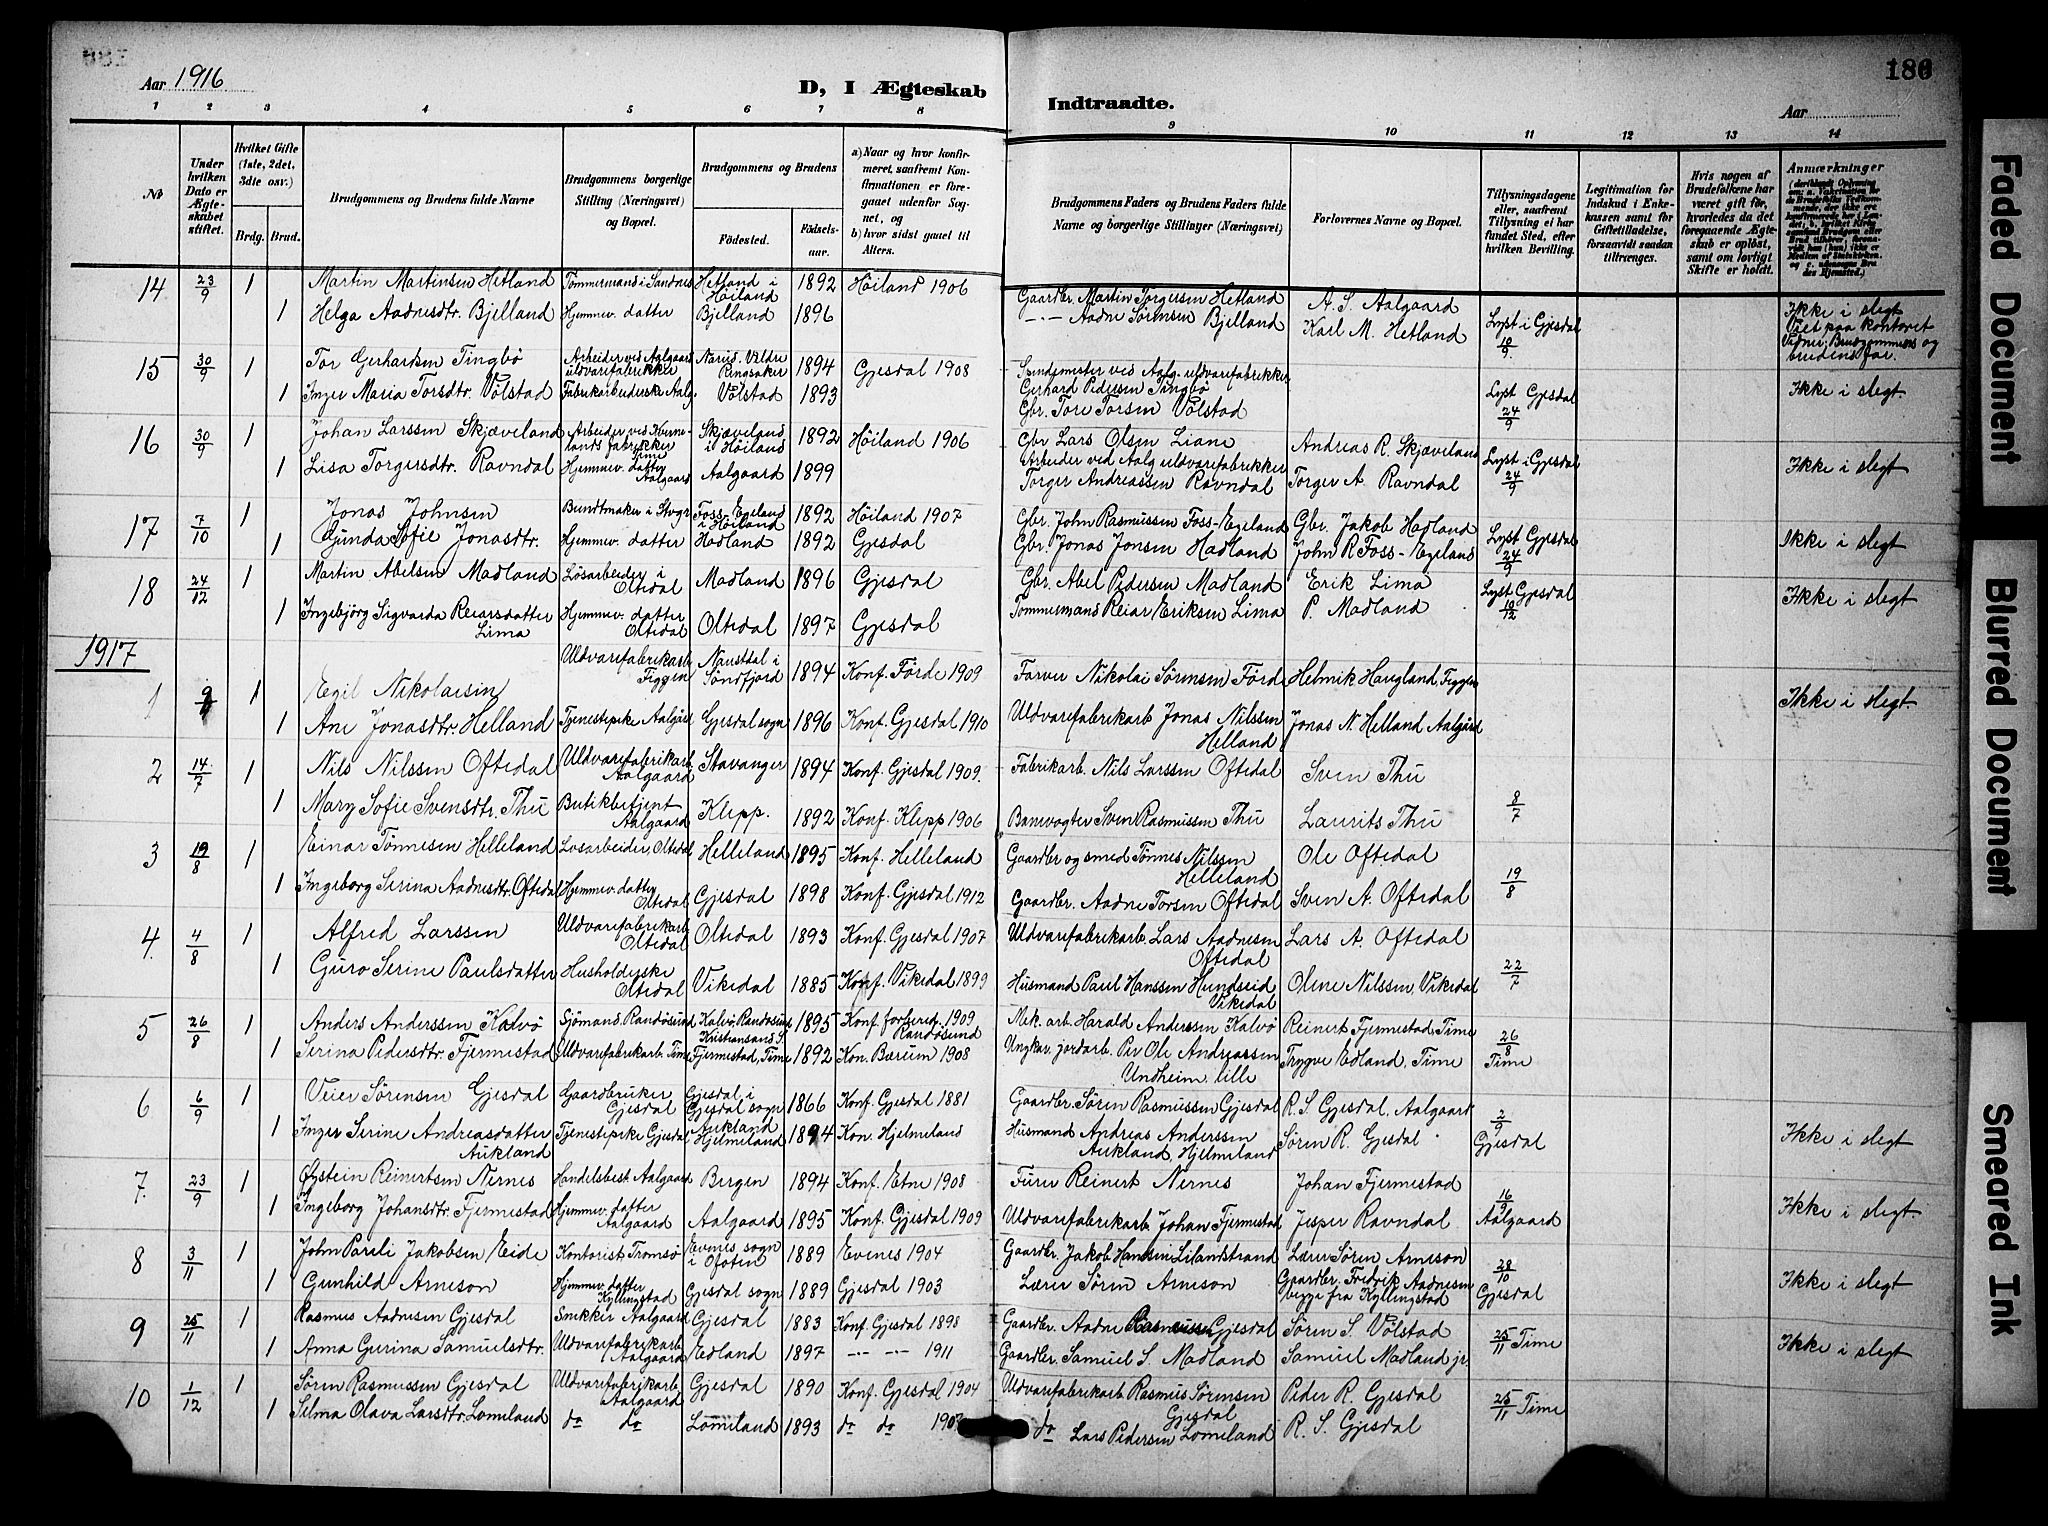 Aar 1916
D, I Ægteskab
Indtraadte.
186
Aar
1 2 3 4 5 6 7 8 9 10 11 12 13 14
No
Under hvilken Dato er Ægteskabet stiftet.
Hvilket Gifte (1ste, 2det, 3die osv.)
Brdg. Brud.
Brudgommens og Brudens fulde Navne
Brudgommens borgerlige Stilling (Næringsvei) og Bopæl.
Brudgommens og Brudens
Fødested.
Fødselsaar.
a) Naar og hvor konfirmeret, saafremt Konfirmationen er foregaaet udenfor Sognet, og
b) hvor sidst gaaet til Alters.
Brudgommens Faders og Brudens Faders fulde Navne og borgerlige Stillinger (Næringsvei)
Forlovernes Navne og Bopæl.
Tillysningsdagene eller, saafremt Tillysning ei har fundet Sted, efter hvilken Bevilling.
Legitimation for Indskud i Enkekassen samt for Giftetilladelse, forsaavidt saadan tiltrænges.
Hvis nogen af Brudefolkene har været gift før, hvorledes da det foregaaende Ægteskab er opløst, samt om lovligt Skifte er holdt.
Anmærkninger
14 23/9 1 Martin Martinsen Hetland Tømmermand i Sandnes Hetland i Höiland 1892 Höiland 1906 Gaardbr. Martin Torgersen Hetland A. S. Aalgaard
1 Helga Aadnesdtr. Bjelland Hjemmev. datter Bjelland 1896 —"— Aadne Sörensen Bjelland Karl M. Hetland Lyst i Gjesdal 10/9 Ikke i slegt Viet paa kontoret Vidner: Brudgommens og brudens far.
15 30/9 1 Tor Gerhardsen Tingbö Arbeider ved Aalgaard uldvarefabrikker Ringsaker 1894 Gjesdal 1908 Spindemester ved Aalg. uldvarefabrikker Gerhard Pedersen Tingbö
1 Inger Maria Torsdtr. Völstad Fabrikarbeiderske Aalg. Völstad 1893 Gbr. Tore Torsen Völstad Lyst Gjesdal 24/9 Ikke i slegt
16 30/9 1 Johan Larssen Skjæveland Arbeider ved Kvernelands fabrikker Time Skjæveland i Höiland 1892 Höiland 1906 Gbr Lars Olsen Liane Andreas R. Skjæveland
1 Lisa Torgersdtr. Ravndal Hjemmev. datter Aalgaard Aalgaard 1899 Arbeider ved Aalg uldvarefabrikker Torger Andreassen Ravndal Torger A. Ravndal Lyst i Gjesdal 24/9 Ikke i slegt
17 7/10 1 Jonas Johnsen Bundtmaker i Stvgr Foss-Egeland i Höiland 1892 Höiland 1907 Gbr. John Rasmussen Foss-Egeland Gbr. Jakob Hadland
1 Gunda Sofie Jonasdtr. Hjemmev. datter Hadland 1892 Gjesdal Gbr. Jonas Jonsen Hadland John R Foss-Egeland Lyst Gjesdal 24/9 Ikke i slegt
18 24/12 1 Martin Abelsen Madland Lösarbeider i Oltedal Madland 1896 Gjesdal Gbr. Abel Pedersen Madland Erik Lima
1 Ingebjörg Sigvarda Reiarsdatter Lima Hjemmev. datter Oltedal Oltedal 1897 Gjesdal Tømmermand Reiar Eriksen Lima P. Madland Lyst Gjesdal 10/12 Ikke i slegt
1917
1 1 Egil Nikolaisen Uldvarefabrikarb Figgen Naustdal i Söndfjord 1894 Konf. Förde 1909 Farver Nikolai Sörensen Förd Helmik Haugland, Figgen
1 Ane Jonasdtr. Helland Tjenestepike Aalgård Gjesdal sogn 1896 Konf. Gjesdal 1910 Uldvarefabrikarb Jonas Nilssen Helland Jonas N. Helland Aalgård Ikke i slegt
2 14/7 1 Nils Nilssen Oftedal Uldvarefabrikarb. Aalgaard Stavanger 1894 Konf. Gjesdal 1909. Fabrikarb. Nils Larssen Oftedal Sven Thu
1 Mary Sofie Svensdtr. Thu Butikbetjent Aalgaard Klepp. 1892 Konf. Klepp 1906 Banevogter Sven Rasmussen Thu Laurits Thu 8/7
3 19/8 1 Einar Tönnesen Helleland Løsarbeider, Oltedal Helleland 1895 Konf. Helleland Gaardbr og smed Tönnes Nilssen Helleland Ole Oftedal
1 Ingeborg Serina Aadnesdtr. Oftedal Hjemmev. datter Oltedal Gjesdal 1898 Konf. Gjesdal 1912 Gaardbr. Aadne Torsen Oftedal Sven A. Oftedal 19/8
4. 4/8 1 Alfred Larssen Uldvarefabrikarb Oltedal Oltedal 1893 Konf. Gjesdal 1907 Uldvarefabrikarb. Lars Aadnesen Oftedal Lars A. Oftedal
1 Guro Serine Paulsdatter Husholderske Oltedal Vikedal 1885 Konf. Vikedal 1899 Husmand Paul Hanssen Hundseid Vikedal Olene Nilssen, Vikedal 22/7
5 26/8 1 Anders Anderssen Kalvö Sjömand, Randösund Kalvö, Randösund Kristiansand S. 1895 Konf. forbered. 1909 Randösund Mek. arb. Harald Anderssen Kalvö Reinert Fjermestad, Time
1 Serina Pedersdtr. Fjermestad Uldvarefabrikarb Time Fjermestad, Time 1892 Kon. Bærum 1908 Ungkar, jordarb. Per Ole Andreassen Undheim, lille Trygve Edland, Time 26/8 Time
6 6/9 1 Veier Sörensen Gjesdal Gaardbruker Gjesdal Gjesdal i Gjesdal sogn 1866 Konf. Gjesdal 1881 Gaardbr. Sören Rasmussen Gjesdal R. S. Gjesdal, Aalgaard
1 Inger Serine Andreasdatter Aukland Tjenestepike Gjesdal Aukland Hjelmeland 1894 Kon. Hjelmeland Husmand Andreas Anderssen Aukland, Hjelmeland Sören R. Gjesdal 2/9 Gjesdal Ikke i slegt
7. 23/9 1 Øystein Reinertsen Nernes Handelsbest. Aalgaard Bergen 1894 Konf. Etne 1908 Fürer Reinert Nernes Johan Fjermestad
1 Ingeborg Johansdtr. Fjermestad Hjemmev. datter Aalgaard Aalgaard 1895 Konf. Gjesdal 1909 Uldvarefabrikarb. Johan Fjermestad Jesper Ravndal 16/9 Aalgaard Ikke i slegt.
8 3/11 1 John Pareli Jakobsen Eide Kontorist Tromsö Evenes sogn i Ofoten 1889 Evenes 1904 Gaardbr. Jakob Hansen Lilandstrand Lærer Sören Arneson
1 Gunhild Arneson Hjemmev. datter Kyllingstad Gjesdal sogn 1889 Gjesdal 1903 Lærer Sören Arneson Gaardbr. Fredrik Aadnesen begge fra Kyllingstad 28/10 Gjesdal Ikke i slegt
9 25/11 1 Rasmus Aadnesen Gjesdal Snekker Aalgaard Gjesdal 1883 Konf. Gjesdal 1898 Gaardbr. Aadne Rasmussen Gjesdal Sören S. Völstad
1 Anna Gurina Samuelsdtr. Uldvarefabrikarb. Aalgaard Edland 1897 —"— —"— 1911 Gaardbr. Samuel S. Madland Samuel Madland jr. 25/11 Time Ikke i slegt
10 1/12 1 Sören Rasmussen Gjesdal Uldvarefabrikarb. Aalgaard Gjesdal 1890 Konf. Gjesdal 1904 Uldvarefabrikarb Rasmus Sörensen Gjesdal Peder R. Gjesdal
1 Selma Olava Larsdtr. Lomeland do do Lomeland 1893 do do do Lars Pedersen Lomeland R. S. Gjesdal 25/11 Time
Faded Document
Blurred Document
Smeared Ink